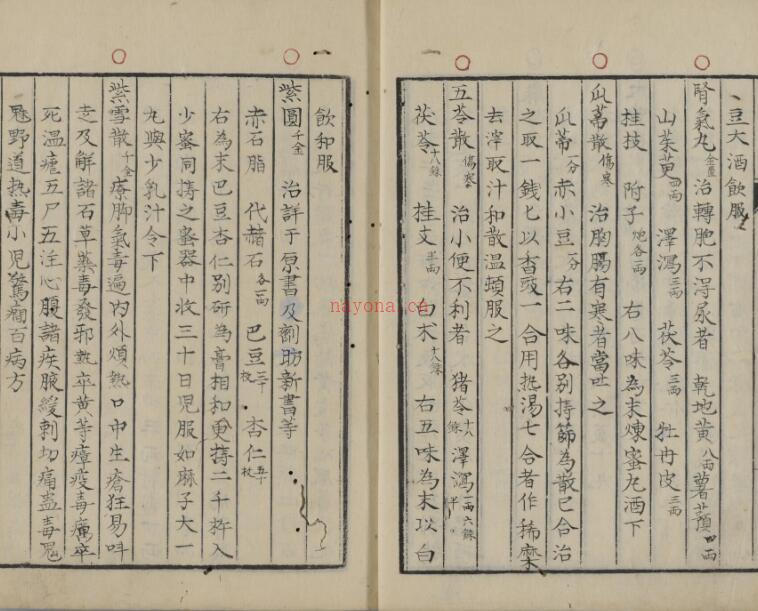 豆大酒飲服
腎氣丸金匱 治轉胞不得尿者 乾地黄八両 薯蕷四両
山茱萸四両 澤瀉三両 茯苓三両 牡丹皮三両
桂技 附子炮各一両 右八味為末煉蜜丸酒下
瓜蔕散傷寒 治胸膈有寒者當吐之
瓜蔕一分 赤小豆一分 右二味各別擣篩為散已合治
之取一錢匕以香豉一合用热湯七合者作稀糜
去滓取汁和散温頓服之
五苓散傷寒 治小便不利者 猪苓十八銖 澤瀉一両六銖半
茯苓十八銖 桂支半両 白术十八銖 右五味為末以白
飲和服
紫圓千金 治詳于原書及劉昉新書等
赤石脂 代赭石各一両 巴豆三十枚 杏仁五十枚
右為末巴豆杏仁別研為膏相和更擣二千杵入
少蜜同擣之蜜器中收三十日児服如麻子大一
丸與少乳汁令下
紫雪散千金 療脚氣毒遍内外煩熱口中生瘡狂易叫
走及解諸石草藥毒發邪熱卒黄等瘴疫毒癘卒
死温瘧五尸五注心腹諸疾腋緩刺切痛蠱毒鬼
魅野道热毒小児驚癇百病方
nayona.cn